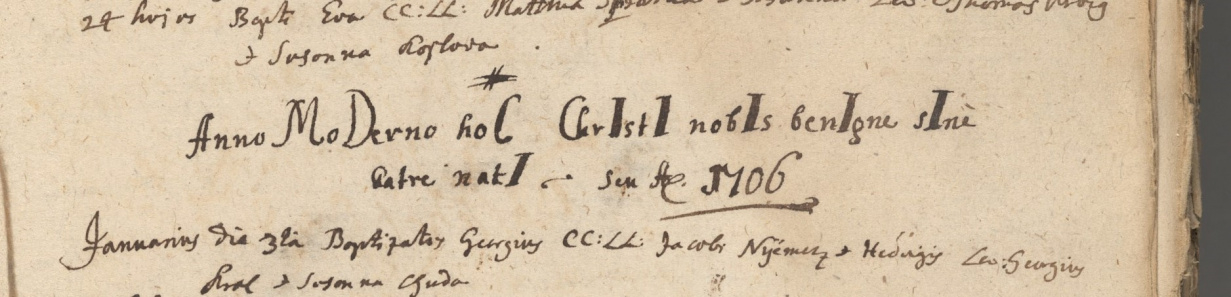 24 hujos Bapt: Eva CC:LL: Matthia
+ Susonna Koslova .
Anno MoDerno hoC ChrIstI nobIs benIgne sIne
Patre natI seu Ao. 1706
Januarius die 3tia Baptizatus Georgius CC:LL: Jacobi Nyémetz + Hedvigis Leo: Georgius
Kral + Susonna Chuda